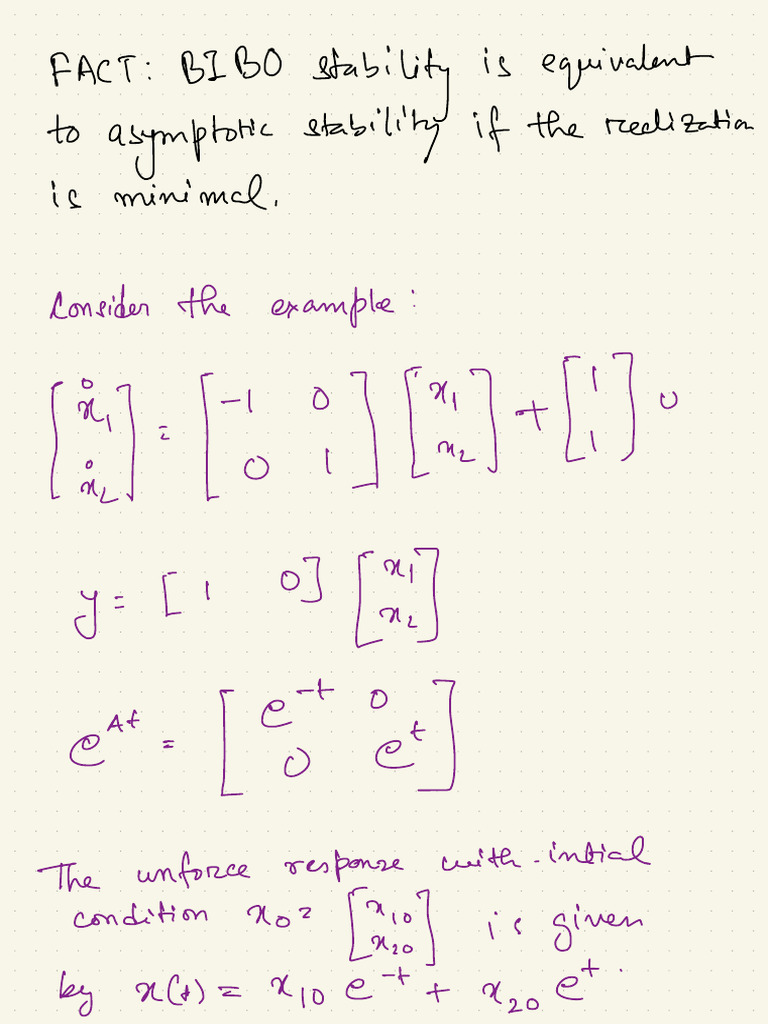 FACT: BIBO stability is equivalent
to asymptotic stability if the realization
is minimal.
Consider the example:
[ẋ₁; ẋ₂] = [-1 0; 0 1] [x₁; x₂] + [1; 1] u
y = [1 0] [x₁; x₂]
e^{At} = [e^{-t} 0; 0 e^{t}]
The unforce response with intial
condition x₀ = [x₁₀; x₂₀] is given
by x(t) = x₁₀ e^{-t} + x₂₀ e^{t}.